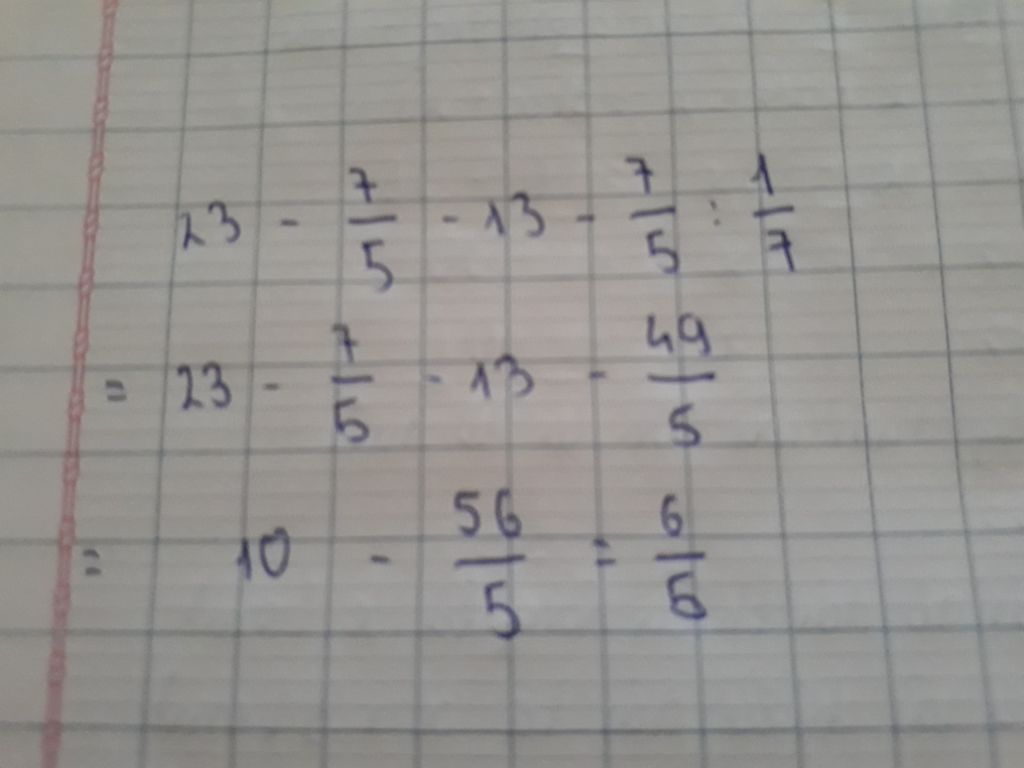 23 - 7/5 - 13 - 7/5 : 1/7
= 23 - 7/5 - 13 - 49/5
= 10 - 56/5 = 6/5